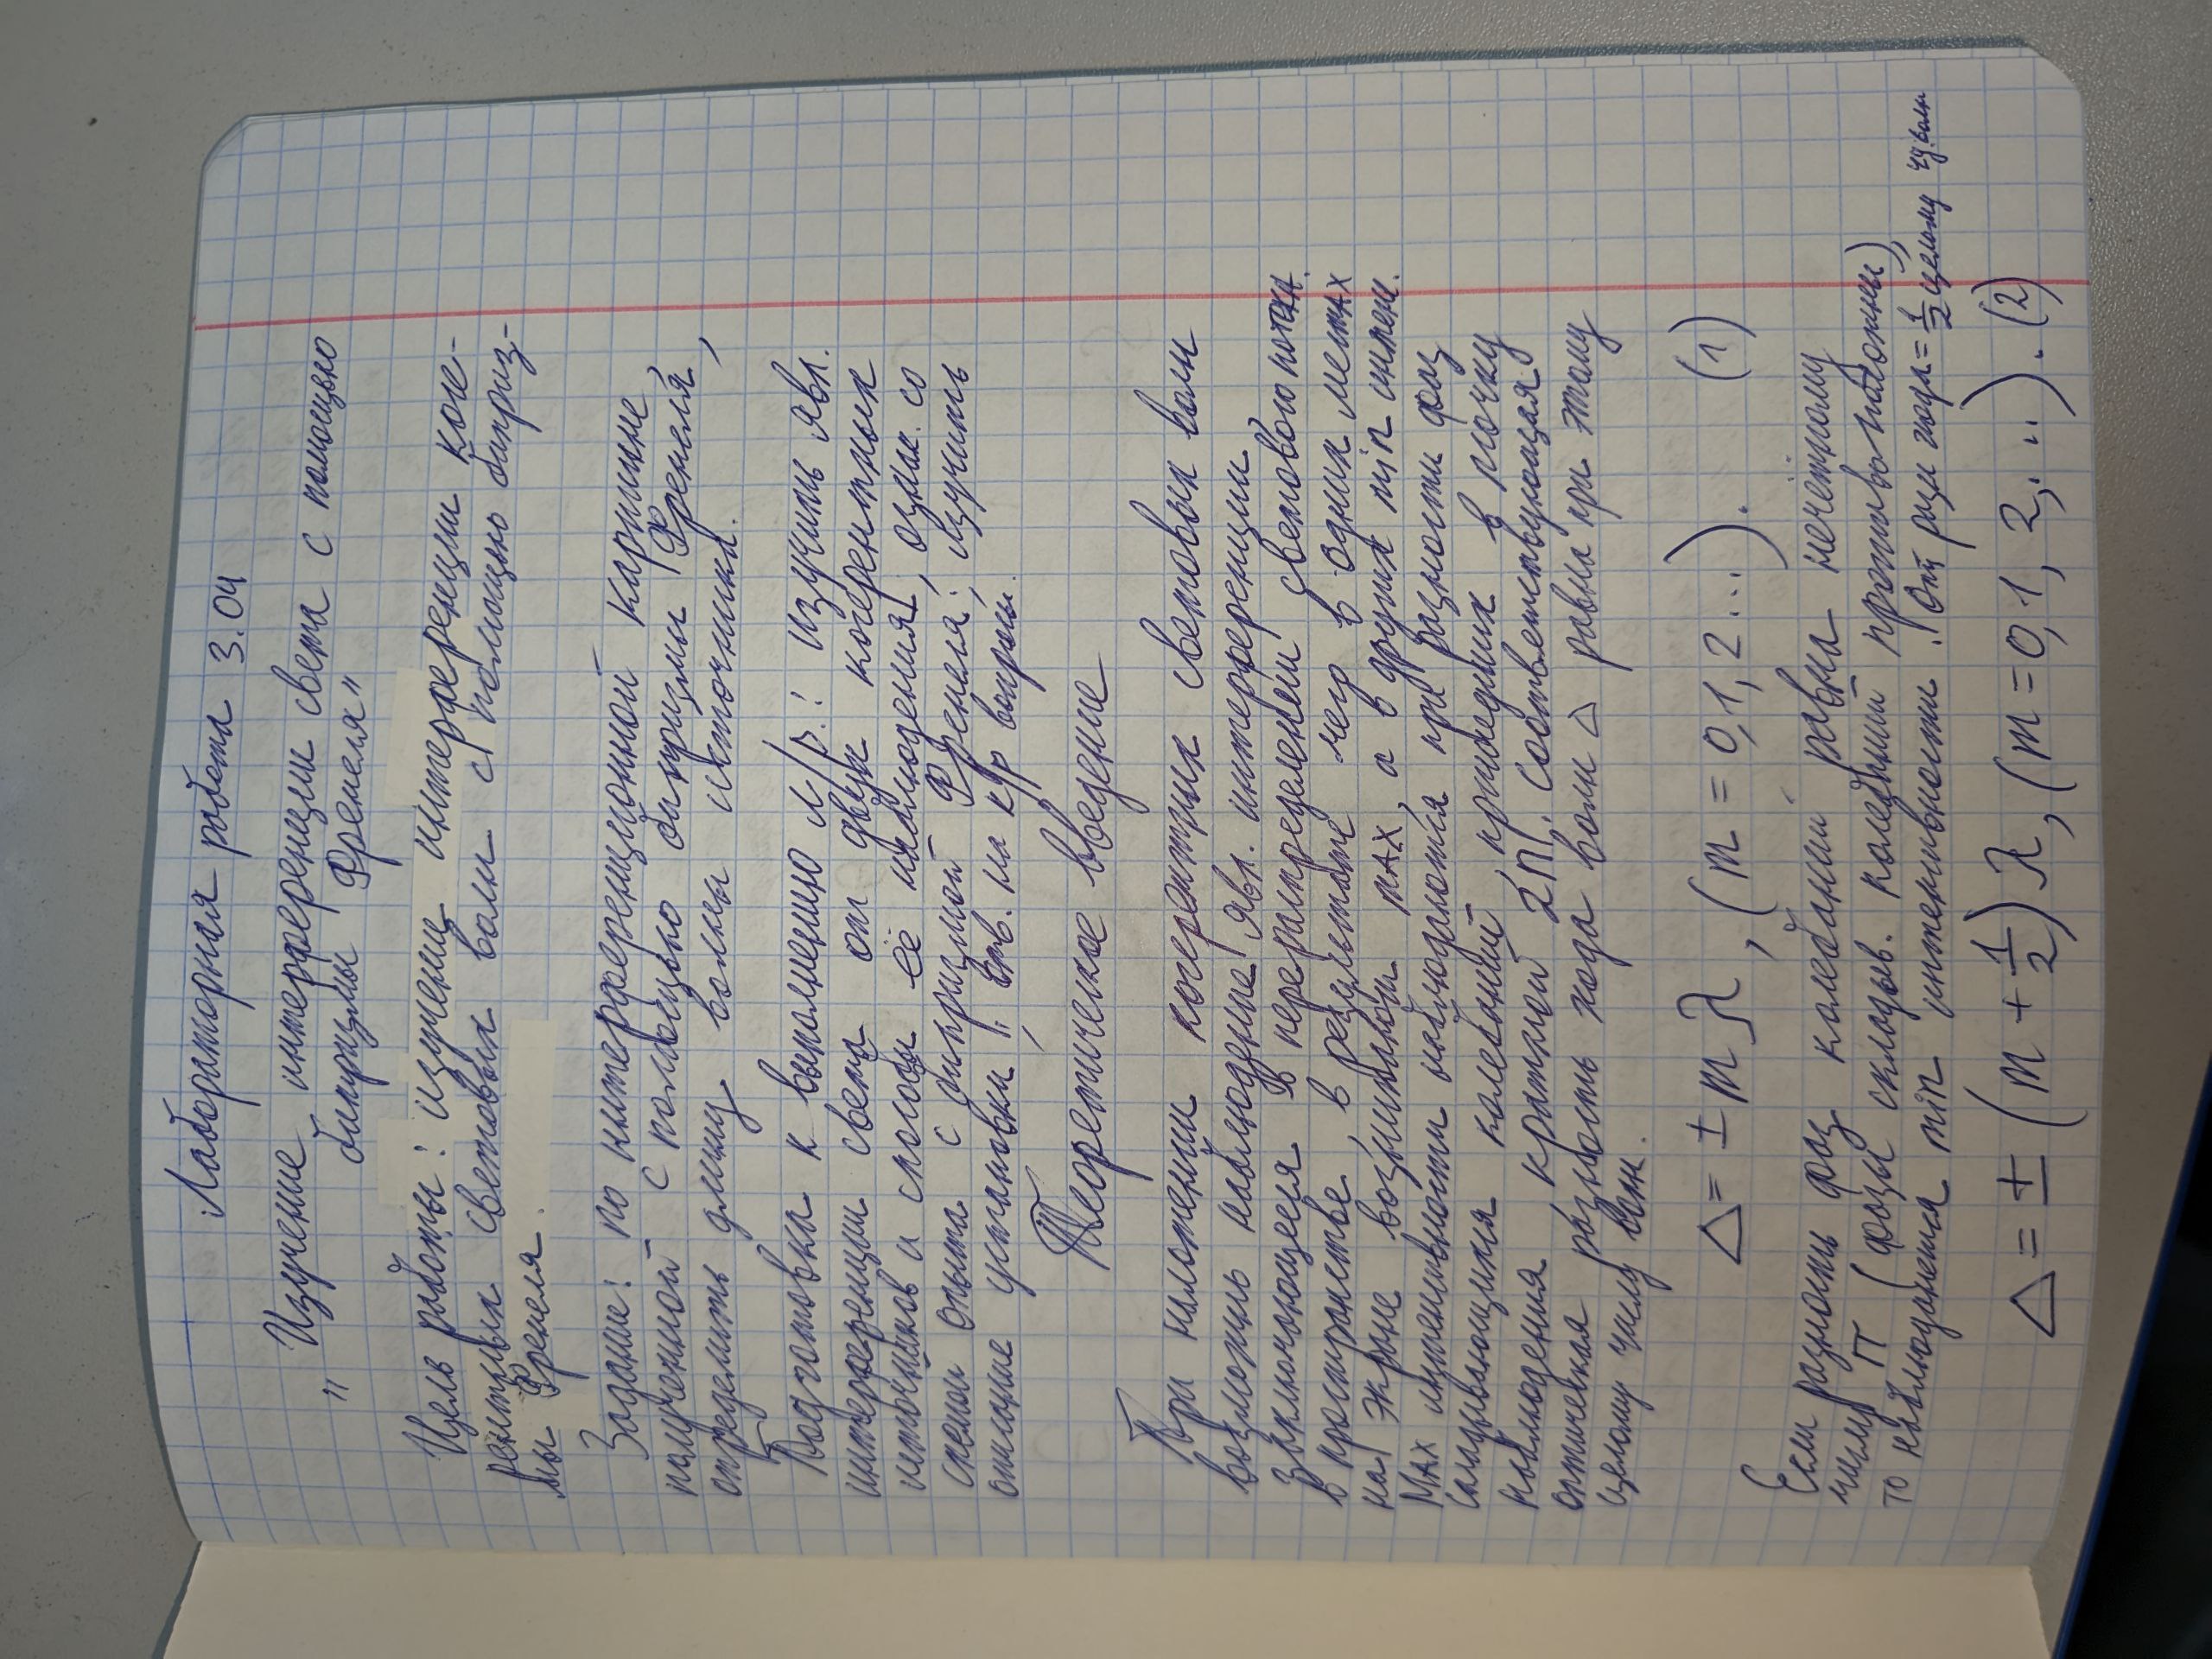 Лабораторная работа 3.04
"Изучение интерференции света с помощью
бипризмы Френеля"
Цель работы: изучение интерференции коге-
рентных световых волн с помощью биприз-
мы Френеля.
Задание: по интерференционной картине,
полученной с помощью бипризмы Френеля,
определить длину волны источника.
Подготовка к выполнению л/р.: изучить явл.
интерференции света от двух когерентных
источников и способы её наблюдения; ознак. со
схемой опыта с бипризмой Френеля; изучить
описание установки; отв. на к/р вопросы.
Теоретическое введение
При наложении когерентных световых волн
возможно наблюдение явл. интерференции
заключающееся в перераспределении светового потока
в пространстве, в результате чего в одних местах
на экране возникают max, а в других min интенс.
Max интенсивности наблюдаются при разности фаз
складывающихся колебаний, приходящих в точку
наблюдения кратной 2π. Соответствующая
оптическая разность хода волн Δ равна при этому
целому числу волн.
Δ = ± m λ, (m = 0, 1, 2...). (1)
Если разность фаз колебаний равна нечётному
числу π (фазы складыв. колебаний противоположны),
то наблюдается min интенсивности. Опт разн хода = 1/2 целому чд волн
Δ = ± (m + 1/2) λ, (m = 0, 1, 2, ..). (2)